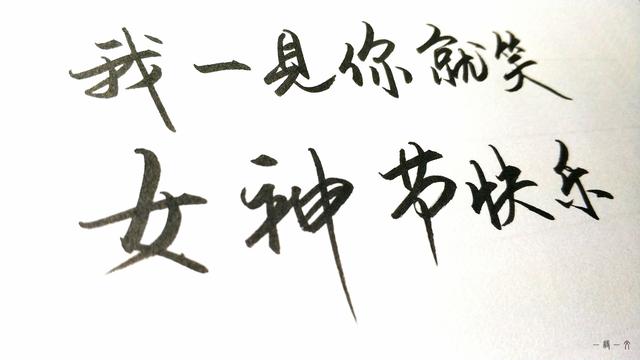 我一见你就笑
女神节快乐